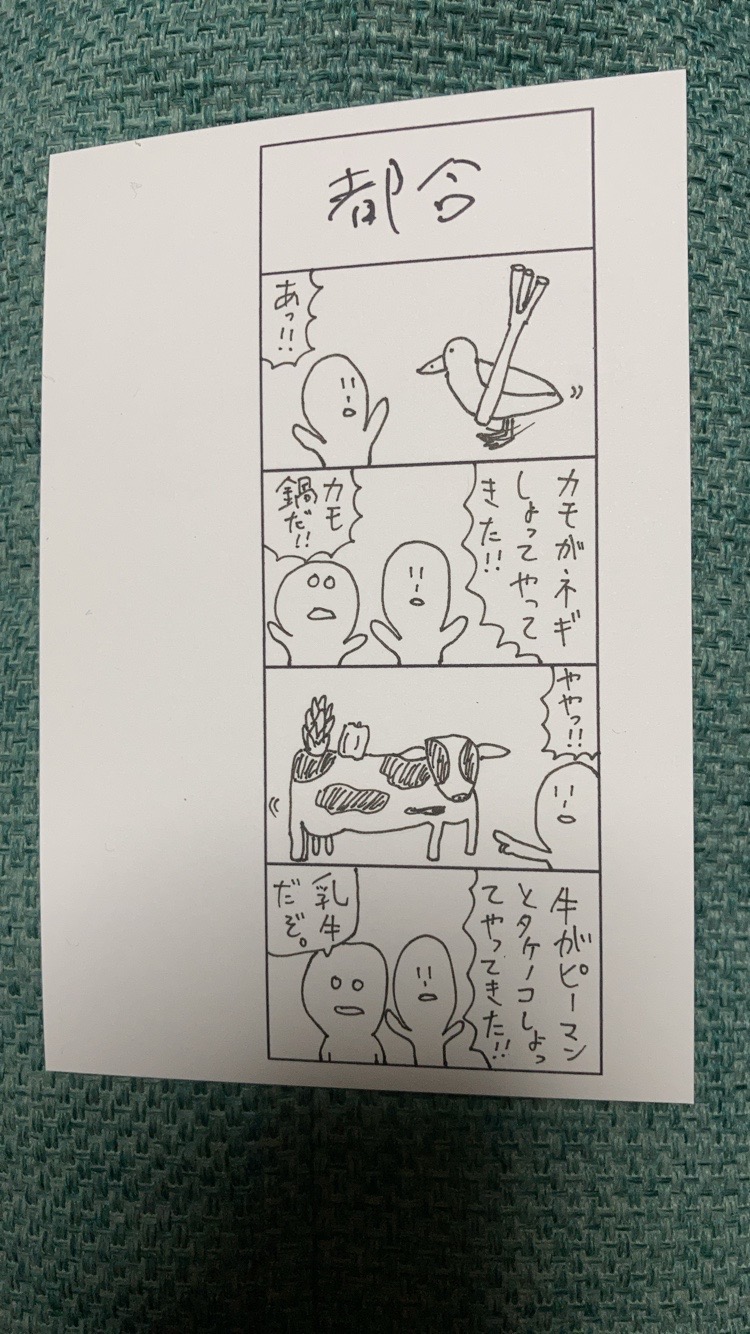 都合
あっ!!
カモがネギ
しょってやって
きた!!
カモ
鍋だ!!
ややっ!!
牛がピーマン
とタケノコしょっ
てやってきた!!
乳牛
だぞ。